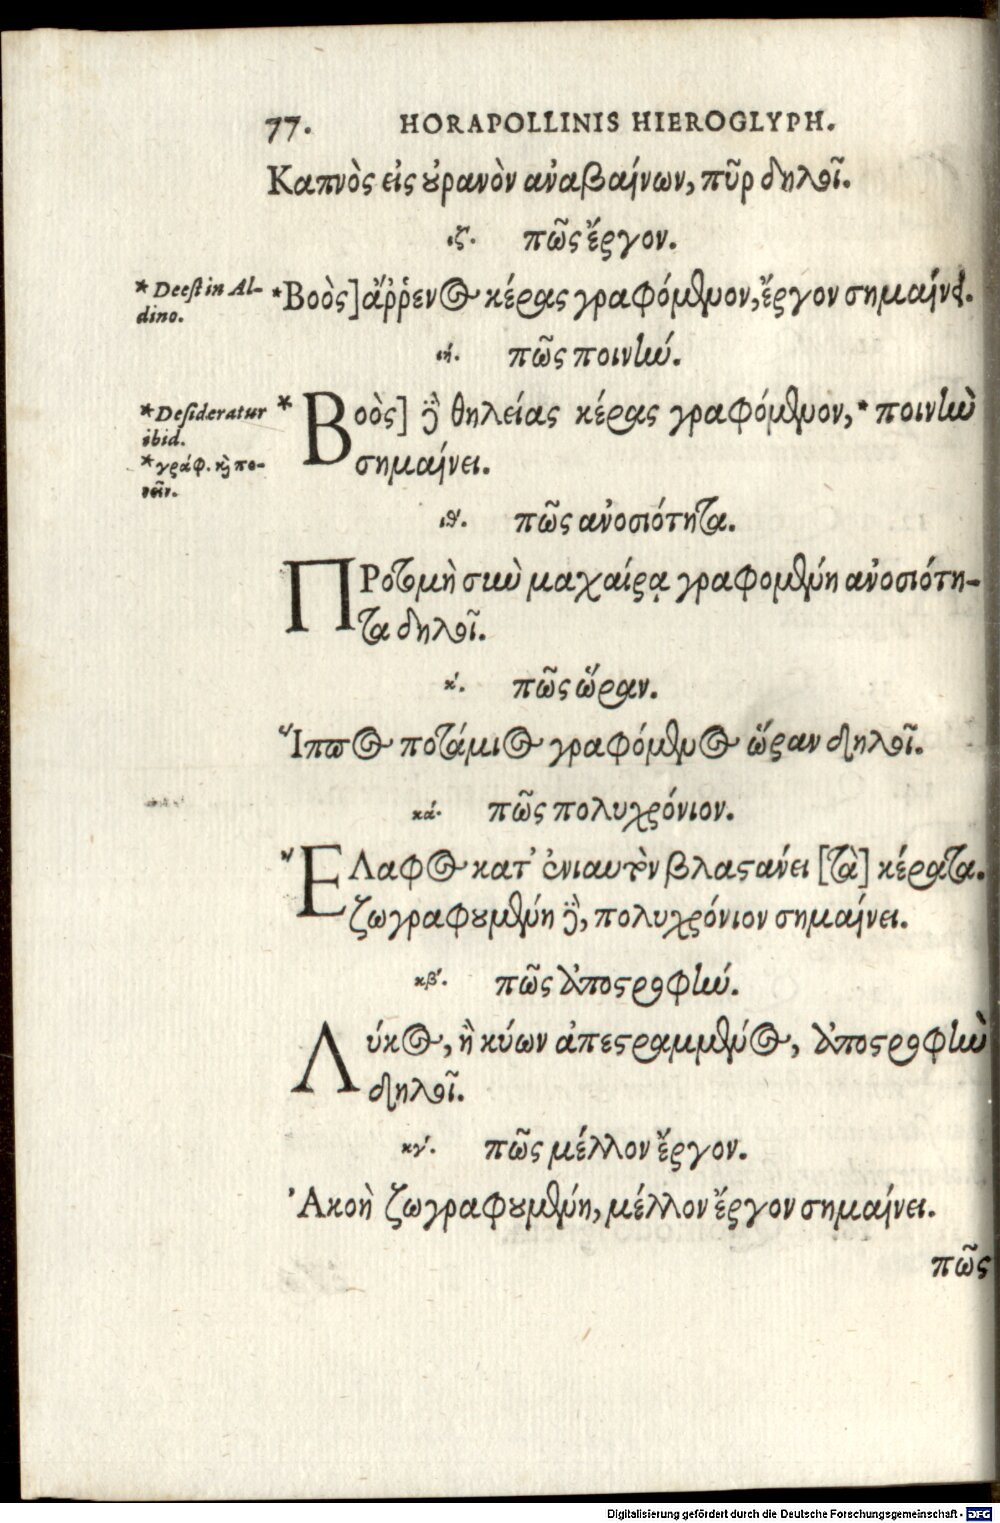 77. HORAPOLLINIS HIEROGLYPH.
Καπνὸς εἰς ȣ̓ρανὸν ἀναβαίνων, πῦρ δηλοῖ.
ιζ´. πῶς ἔργον.
* Deest in Al-
dino.
*Βοὸς] ἄῤῥενος κέρας γραφόμενον, ἔργον σημαίνει.
ιή. πῶς ποινήν.
* Desideratur
ibid.
* γράφ. κὶ πο-
νεῖν.
* Βοὸς] δὲ θηλείας κέρας γραφόμενον, * ποινὴν
σημαίνει.
ιθ´. πῶς ἀνοσιότητα.
ΠΡοτομὴ σὺν μαχαίρᾳ γραφομένη ἀνοσιότη-
τα δηλοῖ.
κ´. πῶς ὥραν.
Ἵππος ποτάμιος γραφόμενος ὥραν δηλοῖ.
κά. πῶς πολυχρόνιον.
ἜΛαφος κατ' ἐνιαυτὸν βλαστάνει [τὰ] κέρατα.
ζωγραφȣμένη δὲ, πολυχρόνιον σημαίνει.
κβ´. πῶς ἀποστροφήν.
Λύκος, ἢ κύων ἀπεστραμμένος, ἀποστροφὴν
δηλοῖ.
κγ´. πῶς μέλλον ἔργον.
Ἀκοὴ ζωγραφȣμένη, μέλλον ἔργον σημαίνει.
πῶς
Digitalisierung gefördert durch die Deutsche Forschungsgemeinschaft - DFG